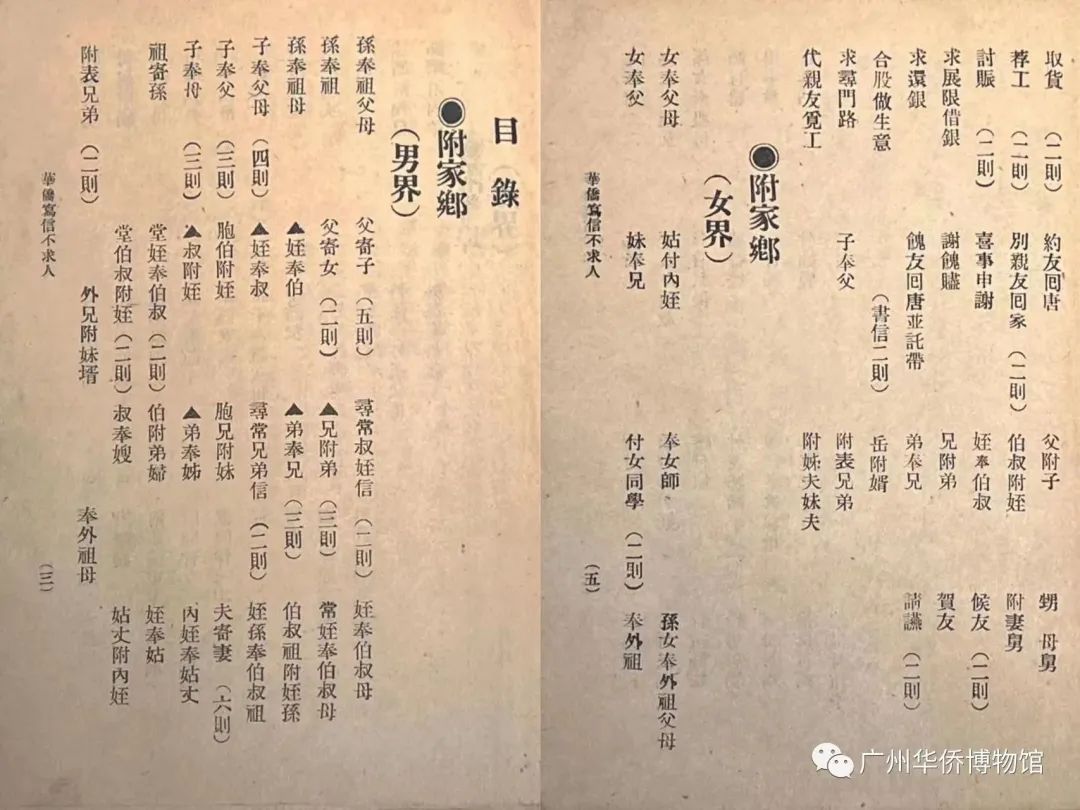 目錄
●附家鄉
（男界）
孫奉祖父母 父寄子（五則） 尋常叔姪信（二則） 姪奉伯叔母
孫奉祖 父寄女（二則） ▲兄附弟（三則） 常姪奉伯叔母
孫奉祖母 ▲姪奉伯 ▲弟奉兄（三則） 伯叔祖附姪孫
子奉父母（四則） ▲姪奉叔 尋常兄弟信（二則） 姪孫奉伯叔祖
子奉父（三則） 胞伯附姪 胞兄附妹 夫寄妻（六則）
子奉母（三則） ▲叔附姪 ▲弟奉姊 內姪奉姑丈
祖寄孫 堂姪奉伯叔（二則） 伯附弟婦 姪奉姑
堂伯叔附姪（二則） 叔奉嫂 姑丈附內姪
附表兄弟（二則） 外兄附妹壻 奉外祖母
華僑寫信不求人 （三）
取貨（二則） 約友囘唐 父附子 甥 母舅
荐工（二則） 別親友囘家（二則） 伯叔附姪 附妻舅
討賬（二則） 喜事申謝 姪奉伯叔 候友（二則）
求展限借銀 謝餽贐 兄附弟 賀友
求還銀 餽友囘唐並託帶 弟奉兄 請讌（二則）
合股做生意（書信二則） 岳附婿
求尋門路 子奉父 附表兄弟
代親友覓工 附姊夫妹夫
●附家鄉
（女界）
女奉父母 姑付內姪 奉女師 孫女奉外祖父母
女奉父 妹奉兄 付女同學（二則） 奉外祖
華僑寫信不求人 （五）
广州华侨博物馆